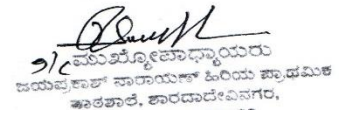 I/c ಮುಖ್ಯೋಪಾಧ್ಯಾಯರು
ಜಯಪ್ರಕಾಶ್ ನಾರಾಯಣ್ ಹಿರಿಯ ಪ್ರಾಥಮಿಕ
ಪಾಠಶಾಲೆ, ಶಾರದಾದೇವಿನಗರ,